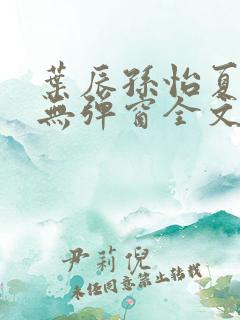 葉辰孫怡夏
無彈窗全文
尹莉倪
未经同意禁止转载